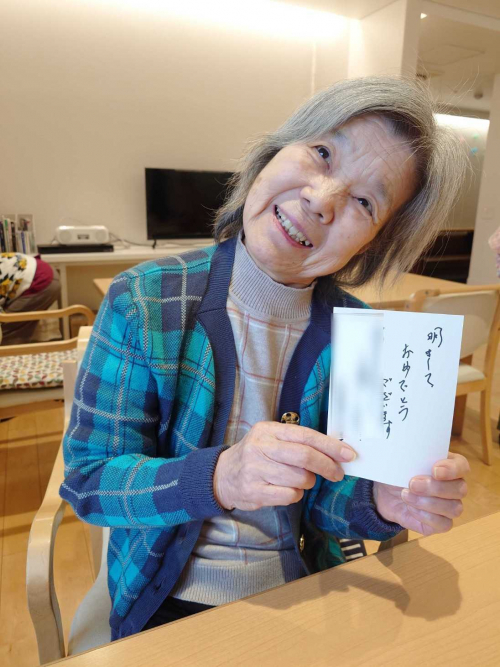 明まして
おめでとう
ございます